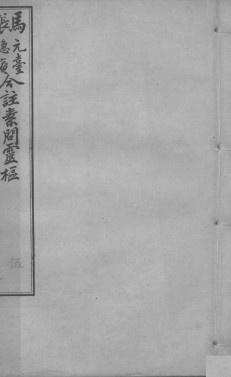 馬元臺
張隱菴
合註素問靈樞